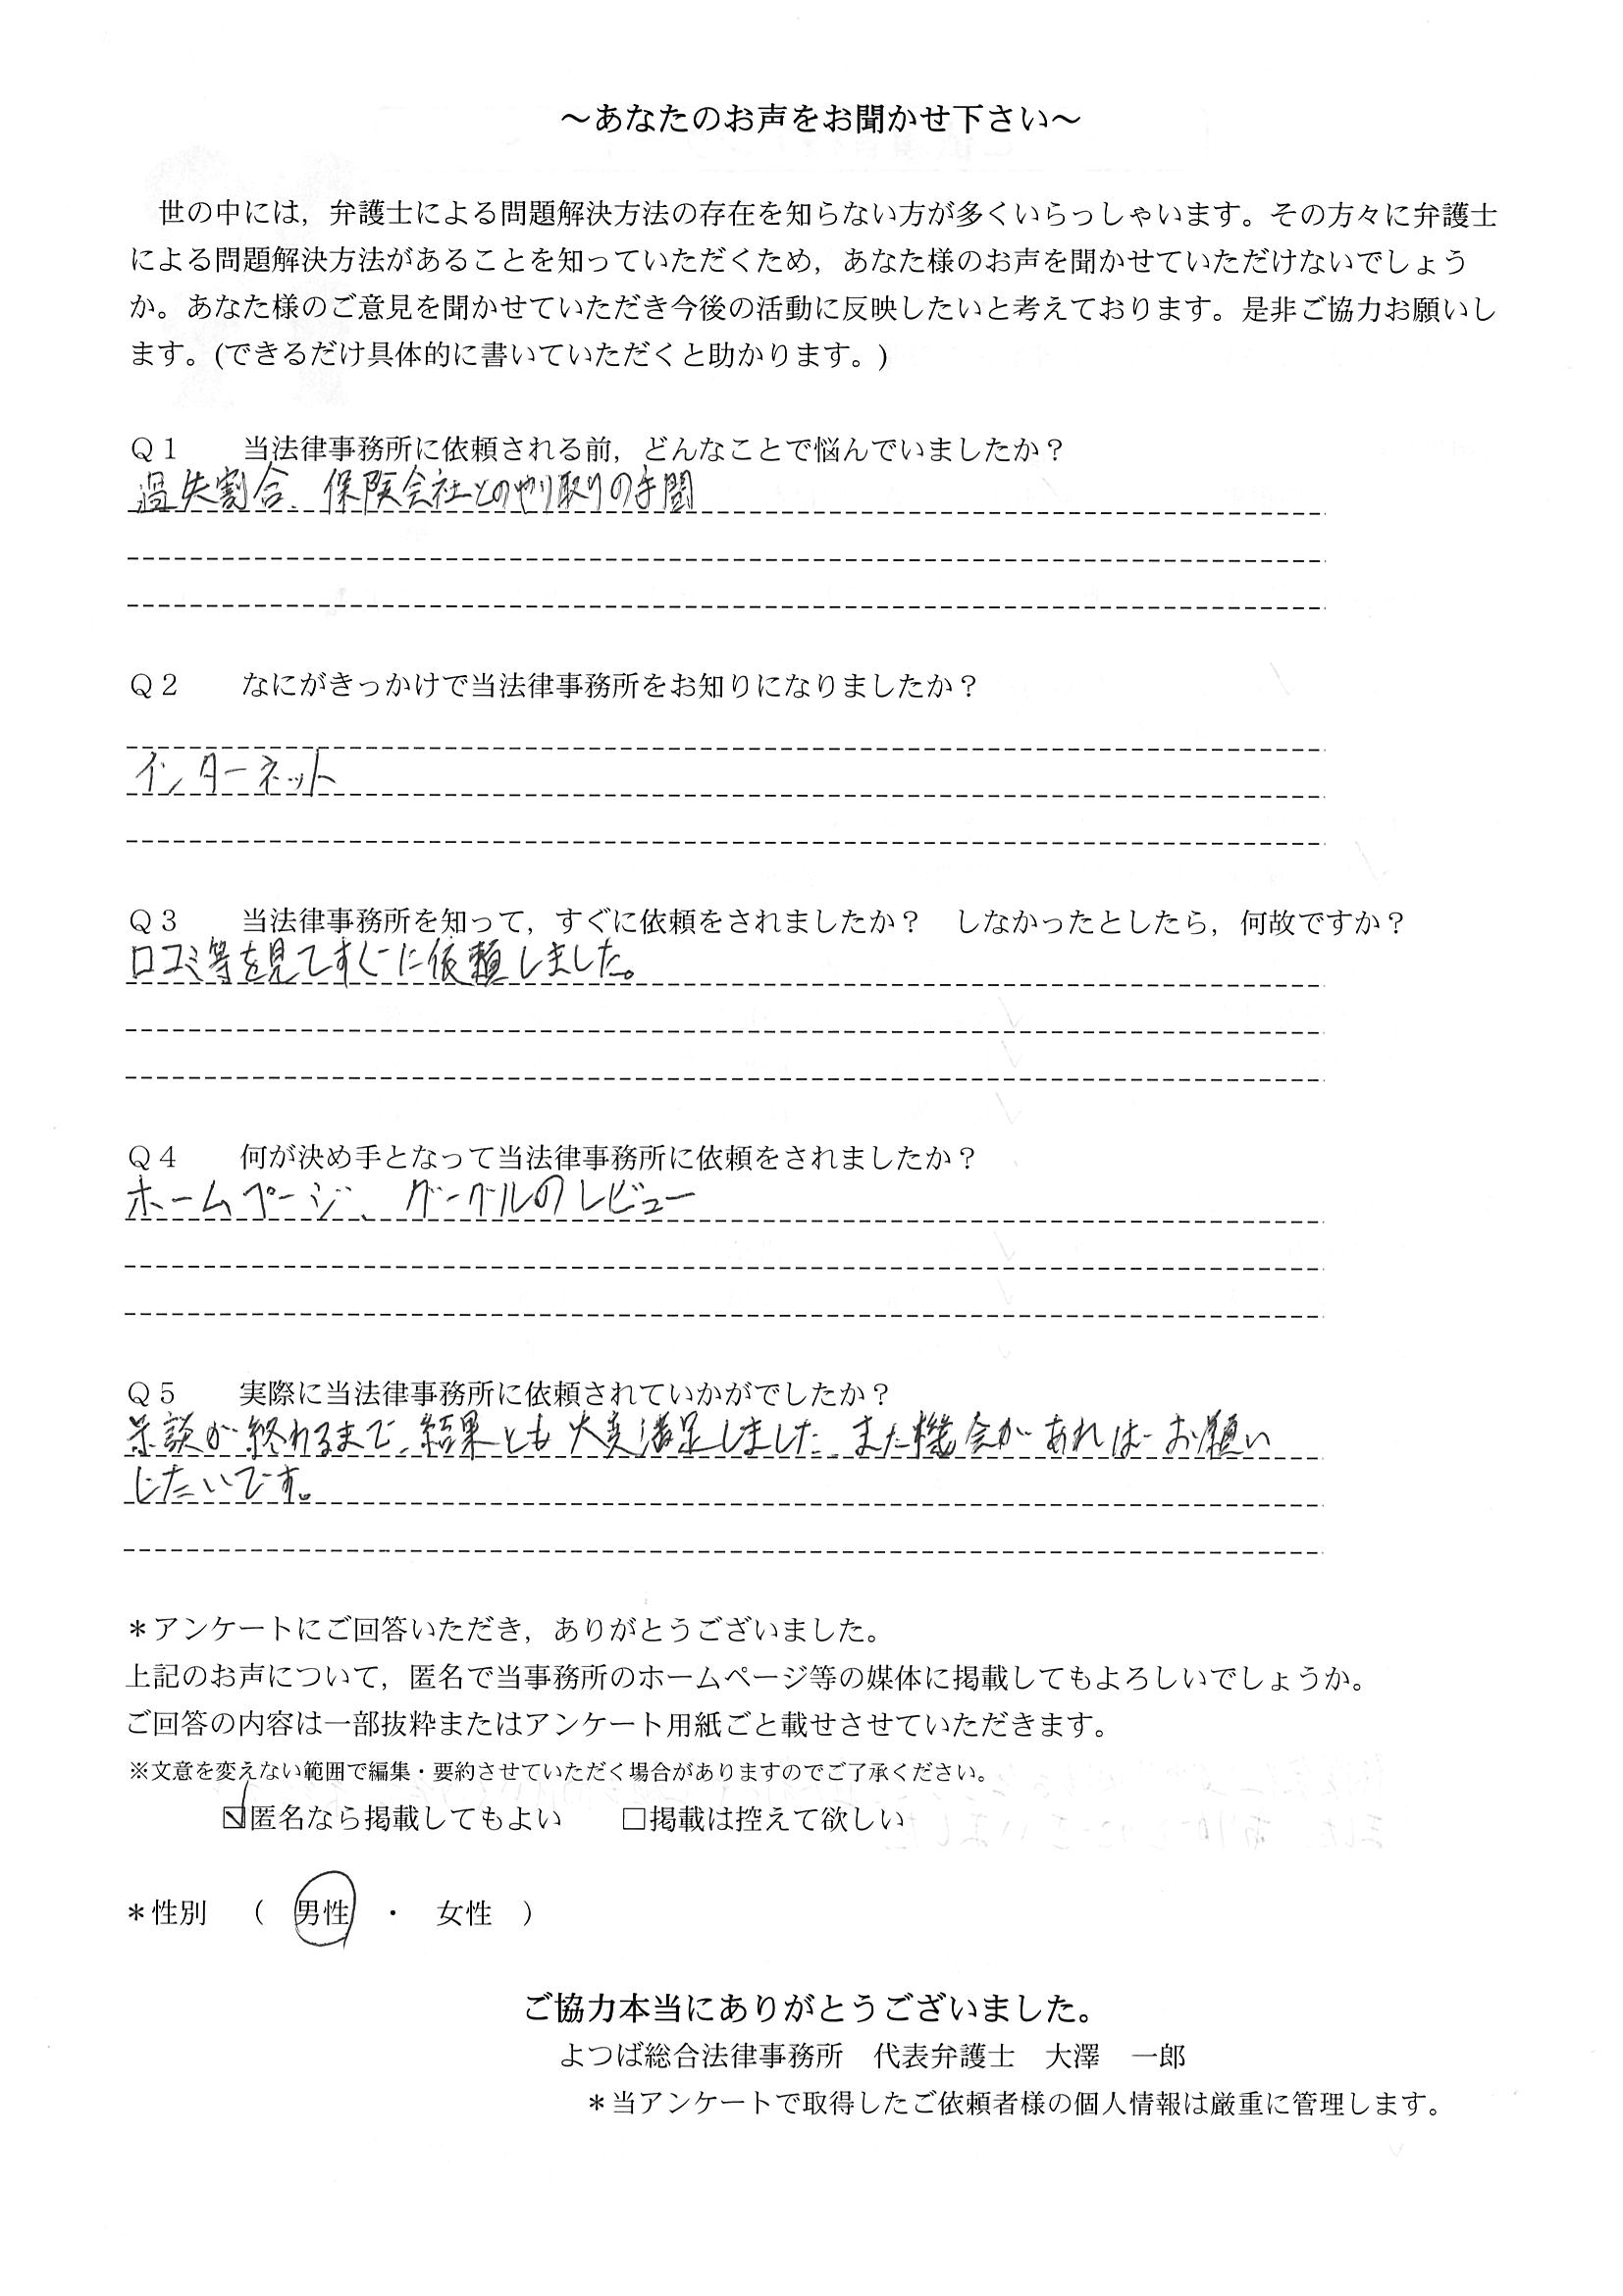 ～あなたのお声をお聞かせ下さい～
世の中には，弁護士による問題解決方法の存在を知らない方が多くいらっしゃいます。その方々に弁護士
による問題解決方法があることを知っていただくため，あなた様のお声を聞かせていただけないでしょう
か。あなた様のご意見を聞かせていただき今後の活動に反映したいと考えております。是非ご協力お願いし
ます。(できるだけ具体的に書いていただくと助かります。)
Ｑ１　　当法律事務所に依頼される前，どんなことで悩んでいましたか？
過失割合、保険会社とのやり取りの手間
Ｑ２　　なにがきっかけで当法律事務所をお知りになりましたか？
インターネット
Ｑ３　　当法律事務所を知って，すぐに依頼をされましたか？　しなかったとしたら，何故ですか？
口コミ等を見てすぐに依頼しました。
Ｑ４　　何が決め手となって当法律事務所に依頼をされましたか？
ホームページ、グーグルのレビュー
Ｑ５　　実際に当法律事務所に依頼されていかがでしたか？
示談が終わるまで、結果とも大変満足しました。また機会があればお願い
したいです。
＊アンケートにご回答いただき，ありがとうございました。
上記のお声について，匿名で当事務所のホームページ等の媒体に掲載してもよろしいでしょうか。
ご回答の内容は一部抜粋またはアンケート用紙ごと載せさせていただきます。
※文意を変えない範囲で編集・要約させていただく場合がありますのでご了承ください。
☑匿名なら掲載してもよい　　□掲載は控えて欲しい
＊性別　（　男性　・　女性　）
ご協力本当にありがとうございました。
よつば総合法律事務所　代表弁護士　大澤　一郎
＊当アンケートで取得したご依頼者様の個人情報は厳重に管理します。